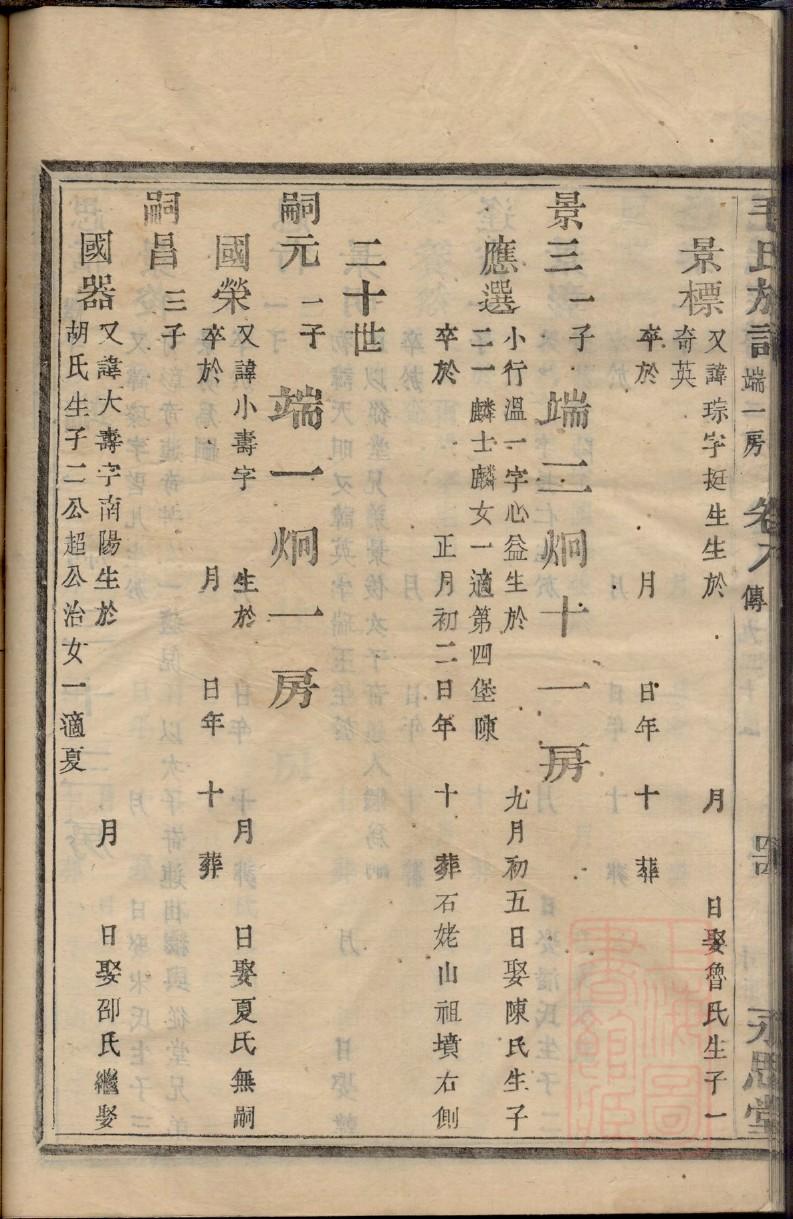 毛氏族譜 端一房 卷八 傳 永思堂
景標 又諱琮字挺生生於 月 日娶魯氏生子一
奇英
卒於 月 日年 十 葬
景三 一子 端三炯十一房
應選 小行溫一字心益生於 九月初五日娶陳氏生子
二一麟士麟女一適第四堡陳
卒於 正月初二日年 十 葬石姥山祖墳右側
二十世
嗣元 一子 端一炯一房
國榮 又諱小壽字 生於 月 日娶夏氏無嗣
卒於 月 日年 十 葬
嗣昌 三子
國器 又諱大壽字南陽生於 月 日娶邵氏繼娶
胡氏生子二公超公治女一適夏